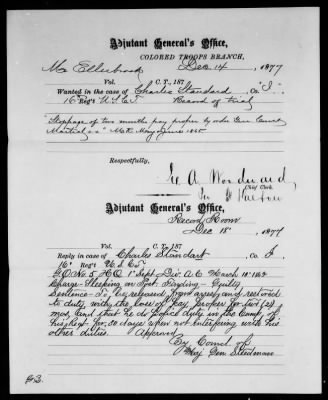 Adjutant General's Office,
COLORED TROOPS BRANCH,
Dec 14, 1877
Mr Ellerbrook
Vol. C. T., 187
Wanted in the case of Charles Standard Co "I"
16" Reg't U.S.C.T. Record of trial
"Stoppage of two months pay proper by order Gen Court
Martial" M.R. May & June 1865
Respectfully,
G. A. Woodward,
Chief Clerk.
Adjutant General's Office,
Record Room
Dec 15" 1877
Vol. C. T., 187
Reply in case of Charles Standart Co. I.
16" Reg't U S C T.
G.O. No 5, HQ 1" Sept. Div. A C March 18" 1864
Charge - Sleeping on Post. Finding - Guilty
Sentence - To be released from arrest and restored
to duty with the loss of pay proper for two (2)
mos, and that he do police duty in the Camp of
his Regt for 20 days when not interfering with his
other duties. Approved
By Comd of
Maj Gen Steedman